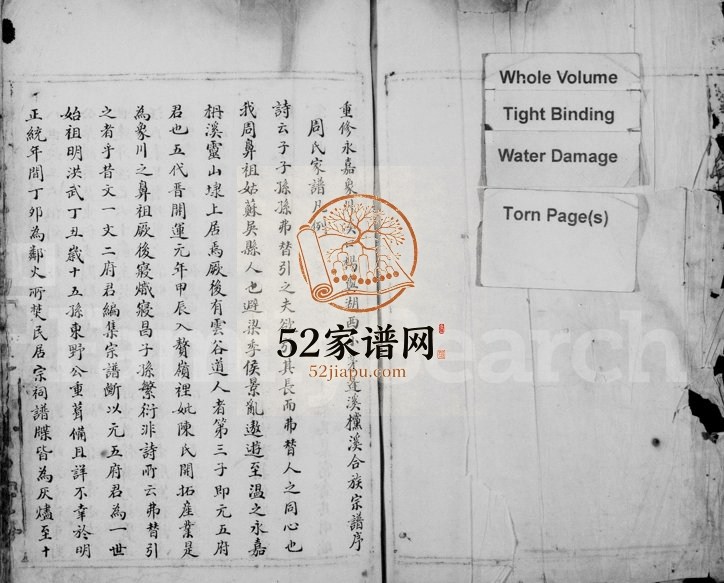 重修永嘉象川
湖西
溪檡溪合族宗譜序
周氏家譜凡例
詩云子子孫孫弗替引之夫欲
其長而弗替人之同心也
我周鼻祖姑蘇吳縣人也避梁季侯景亂遨遊至溫之永嘉
枬溪靈山埭上居焉厥後有雲谷道人者第三子即元五府
君也五代晉開運元年甲辰入贅嶺裡妣陳氏開拓產業是
為象川之鼻祖厥後寢熾寢昌子孫繁衍非詩所云弗替引
之者乎昔文一文二府君編集宗譜斷以元五府君為一世
始祖明洪武丁丑歲十五孫東野公重葺備且詳不幸於明
正統年間丁卯為鄰火所焚民居宗祠譜牒皆為灰燼至十
52家谱网
52jiapu.com
Whole Volume
Tight Binding
Water Damage
Torn Page(s)